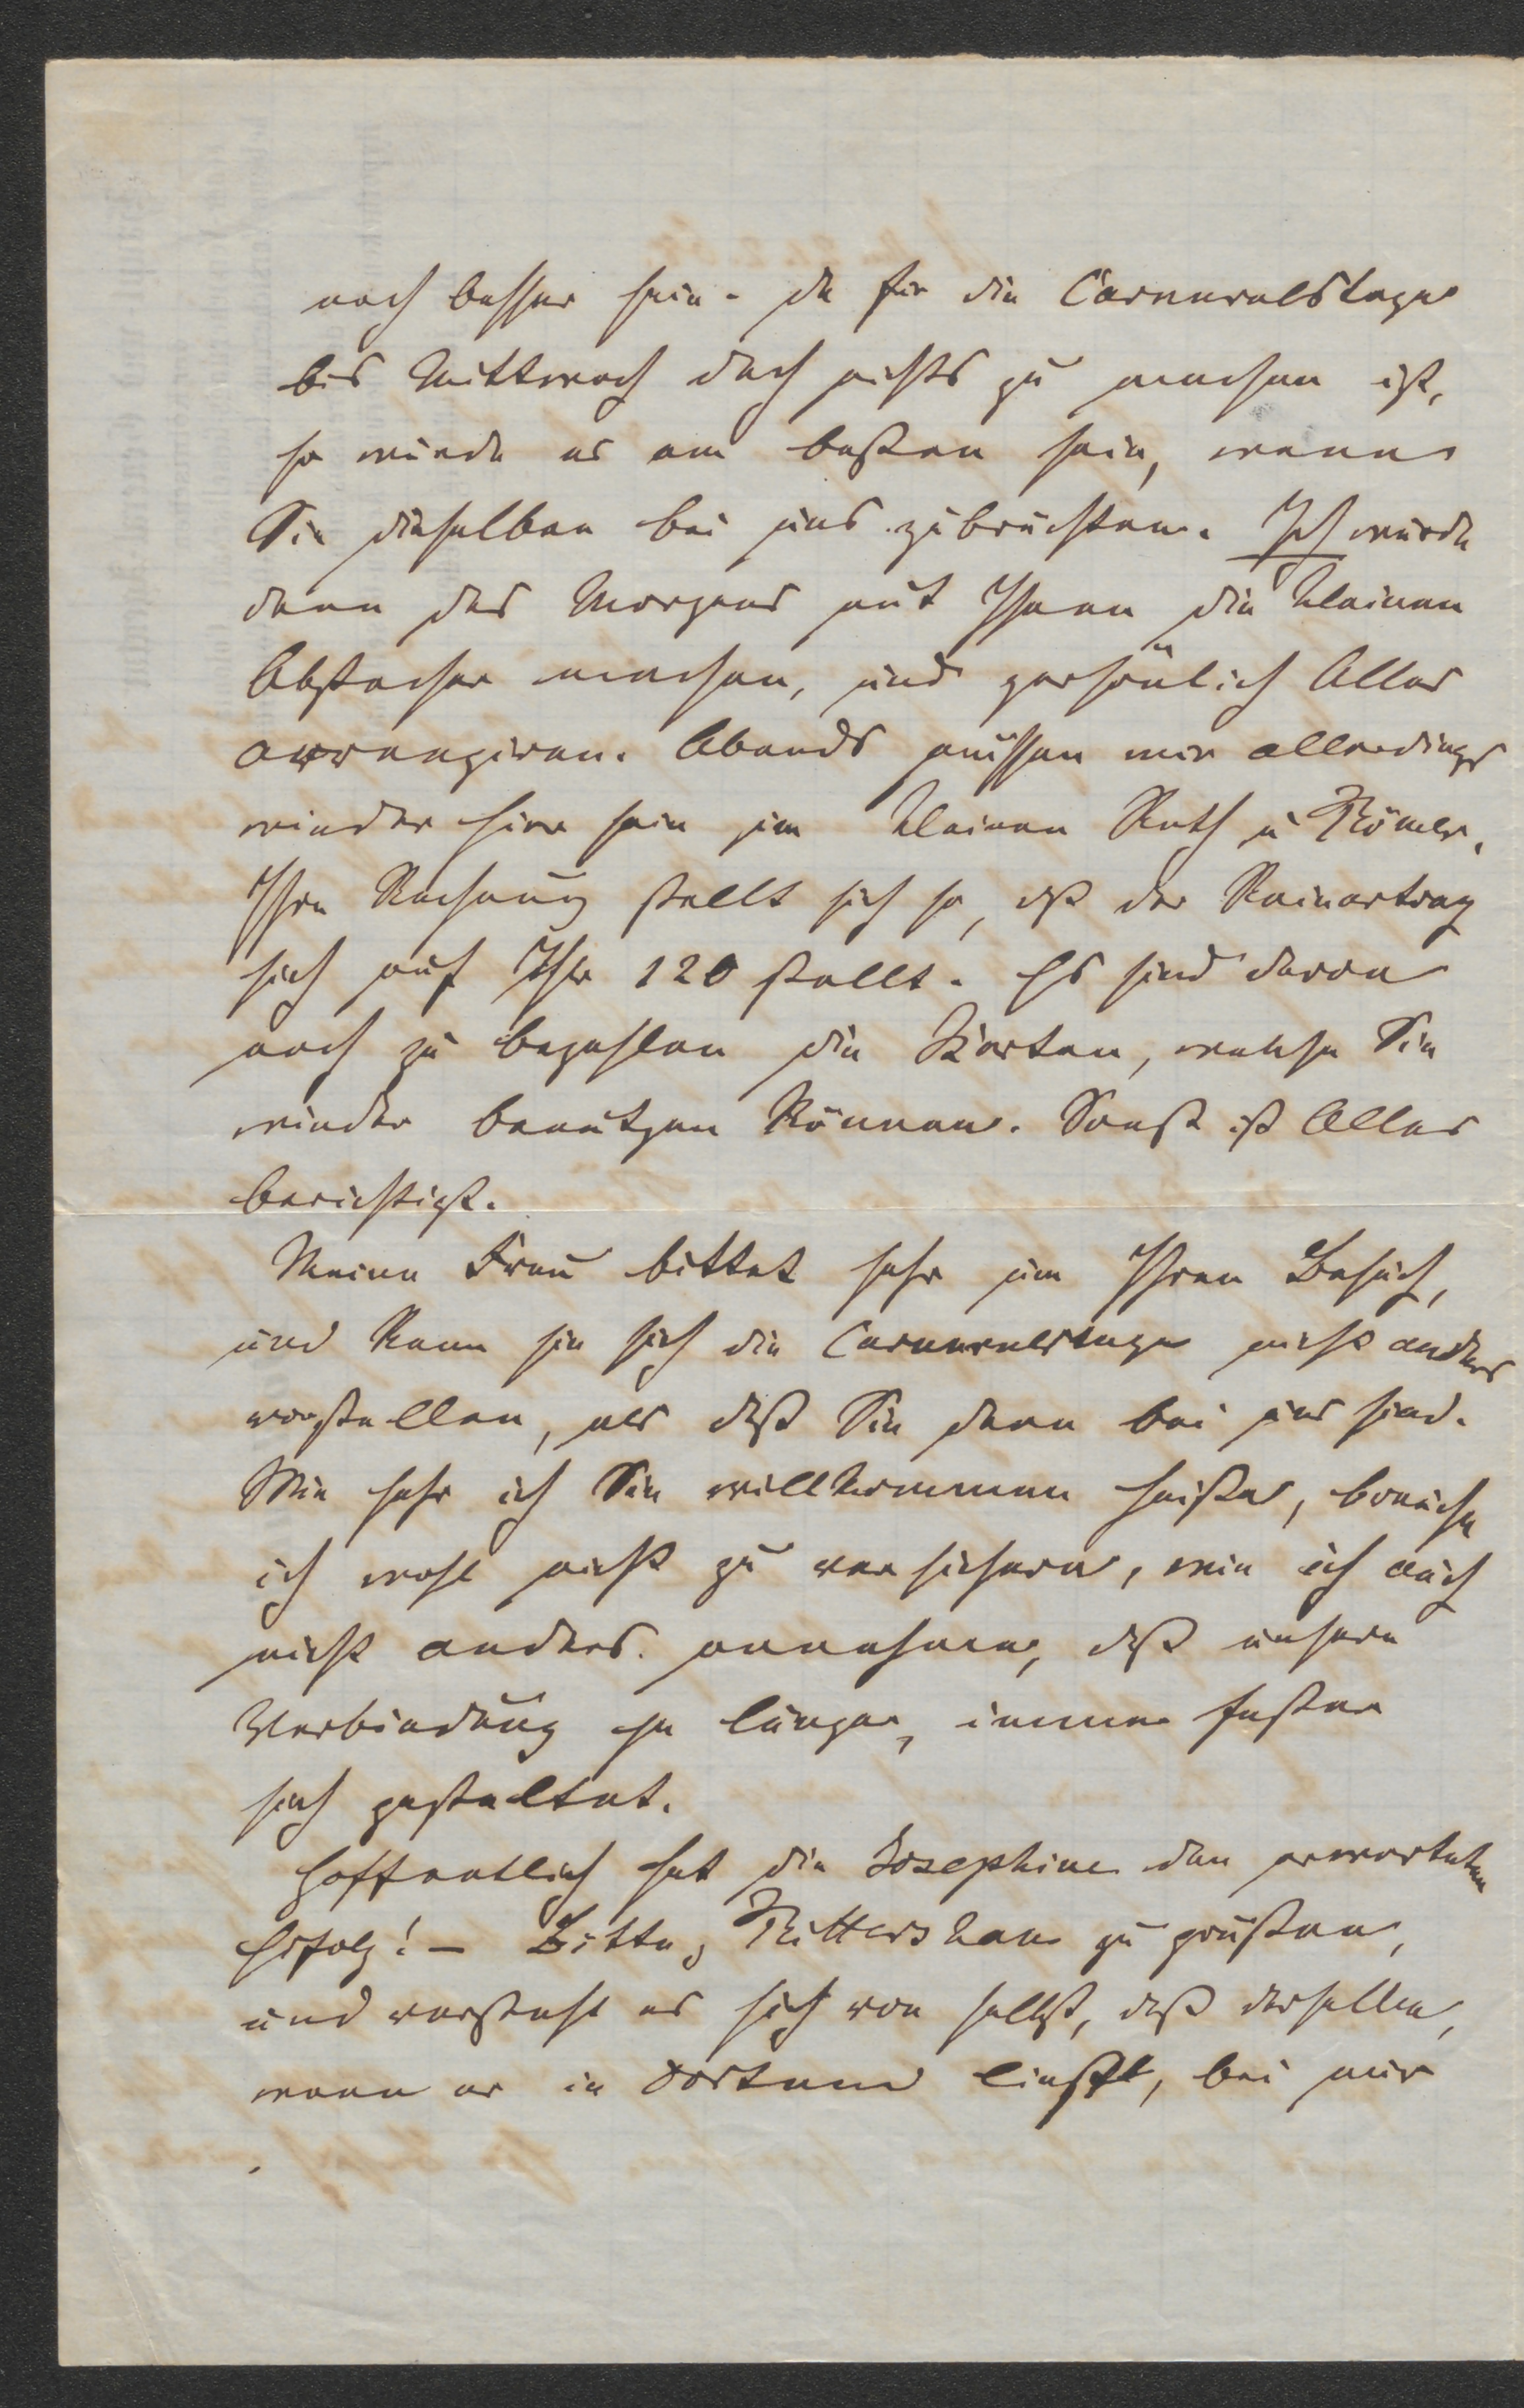 noch besser sein. Da für die Carnevalstage
bis Mittwoch doch nichts zu machen ist,
so würde es am besten sein, wenn
Sie dieselben bei uns zubrächten. Ich würde
dann des Morgens mit Ihnen die kleinen
Abstecher machen, und persönlich Alles
arrangiren. Abends müssen wir allerdings
wieder hier sein im kleinen Rath u Römer.
Ihre Rechnung stellt sich so, daß der Reinertrag
sich auf Thlr 120 stellt. Es sind davon
noch zu bezahlen die Karten, welche Sie
wieder benutzen können. Sonst ist Alles
berichtigt.
Meine Frau bittet sehr um Ihren Besuch,
und kann sie sich die Carnevalstage nicht anders
vorstellen, als daß Sie dann bei uns sind.
Wie sehr ich Sie willkommen heiße, brauche
ich wohl nicht zu versichern, wie ich auch
nicht anders annehme, daß unsere
Verbindung je länger, immer fester
sich gestaltet.
Hoffentlich hat die Josephine den erwarteten
Erfolg! – Bitte, Rittershaus zu grüßen,
und versteht es sich von selbst, daß derselbe,
wenn er in Dortmund ließt, bei mir